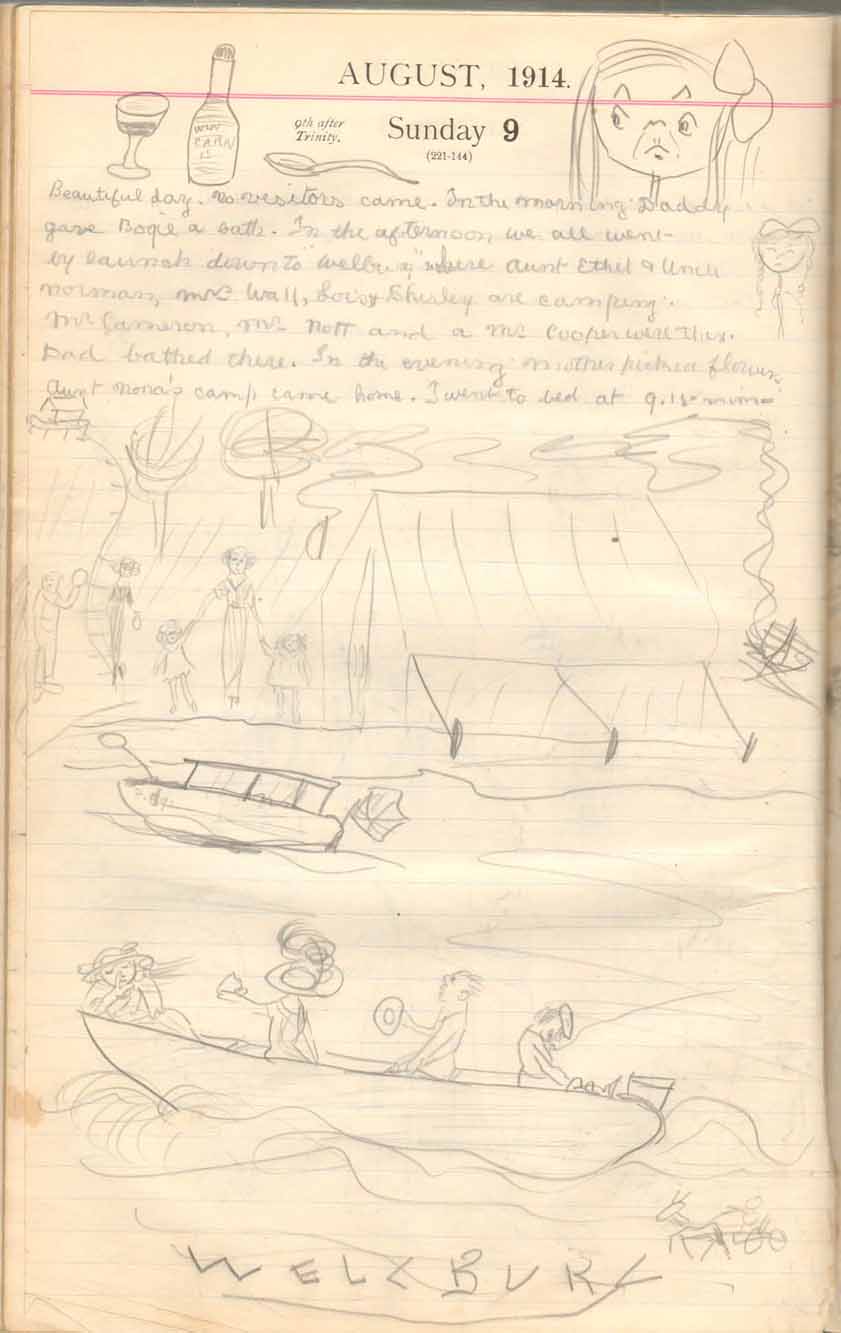 AUGUST, 1914.
9th after
Trinity.
Sunday 9
(221-144)
Beautiful day. No vesitors came. In the morning Daddy
gave Bogie a bath. In the afternoon we all went
by launch down to "Welbury" where Aunt Ethel & Uncle
Norman, Mrs Wall, Lois & Shirley are camping.
Mr Cameron, Mr Nott and a Mr Cooper were
Dad bathed there. In the evening mother picked flowers.
Aunt Nora's camp came home. I went to bed at 9.15
WELLBURY